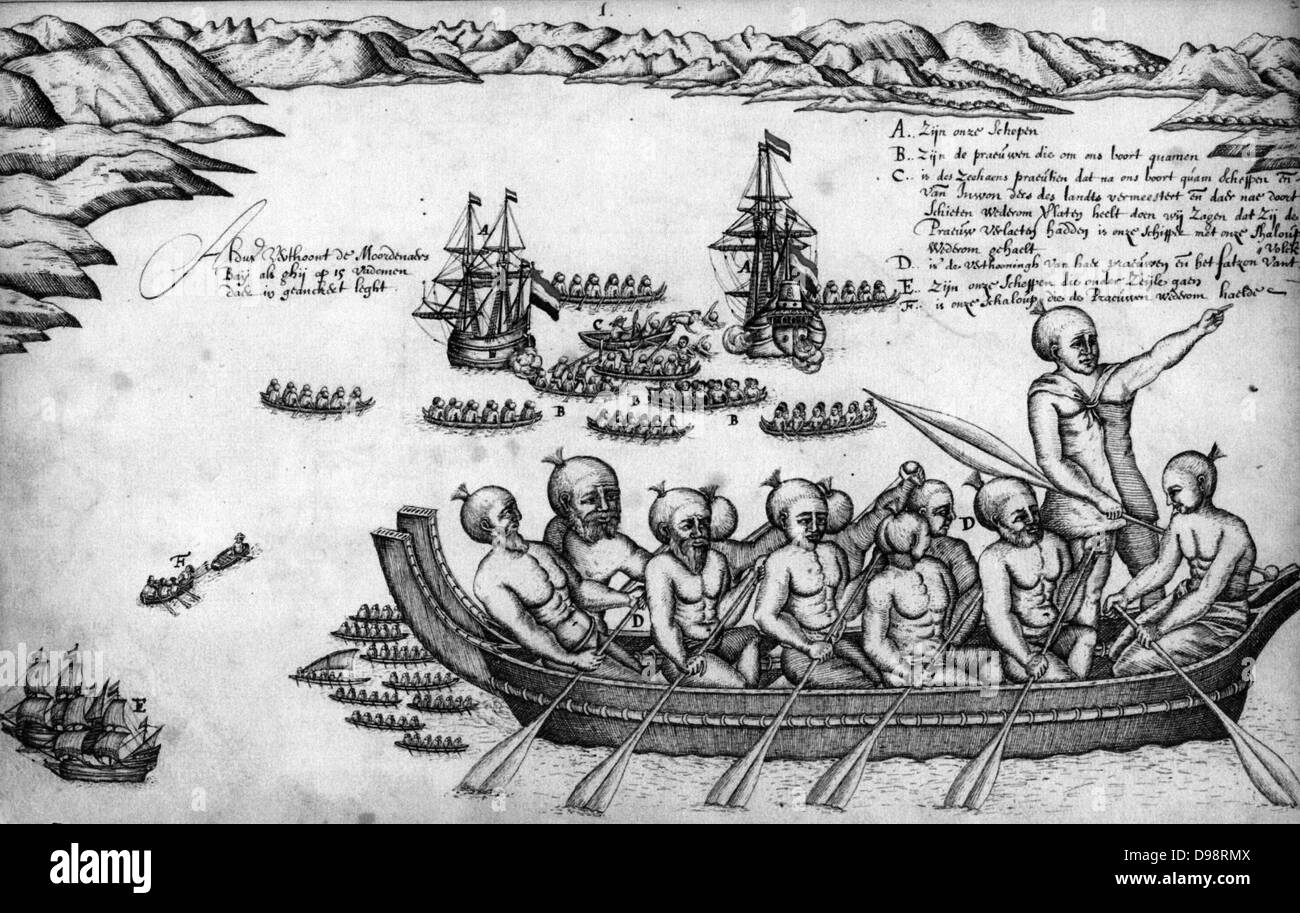 1.
A.. Zijn onze Schepen
B.. Zijn de praeuwen die om ons boort quamen
C.. is des Zeehaens praeutien dat na ons boort quam Scheppen en
van Inwon ders des landts vermeestert en daer nae door
Schieten Wederom Verlaten heelt doen wij Zagen dat Zij de
Praeuw Verlaeten hadden is onze Schipper met onze Shaloup
Wederom gehaelt
D.. is de Verthooningh van haer praeuwen en het fatzon Vant
Volck
E.. Zijn onze Scheppen die onder Zeijle gaen
F.. is onze Schaloup die de Praeuwen wederom haelde
Aldus Verthoont de Moordenaers
Baij als ghij op 15 Vademen
daer in geanckert leght
A
A
C
B
B
B
D
D
F
E
a
alamy stock photo
alamy
D98RMX
www.alamy.com